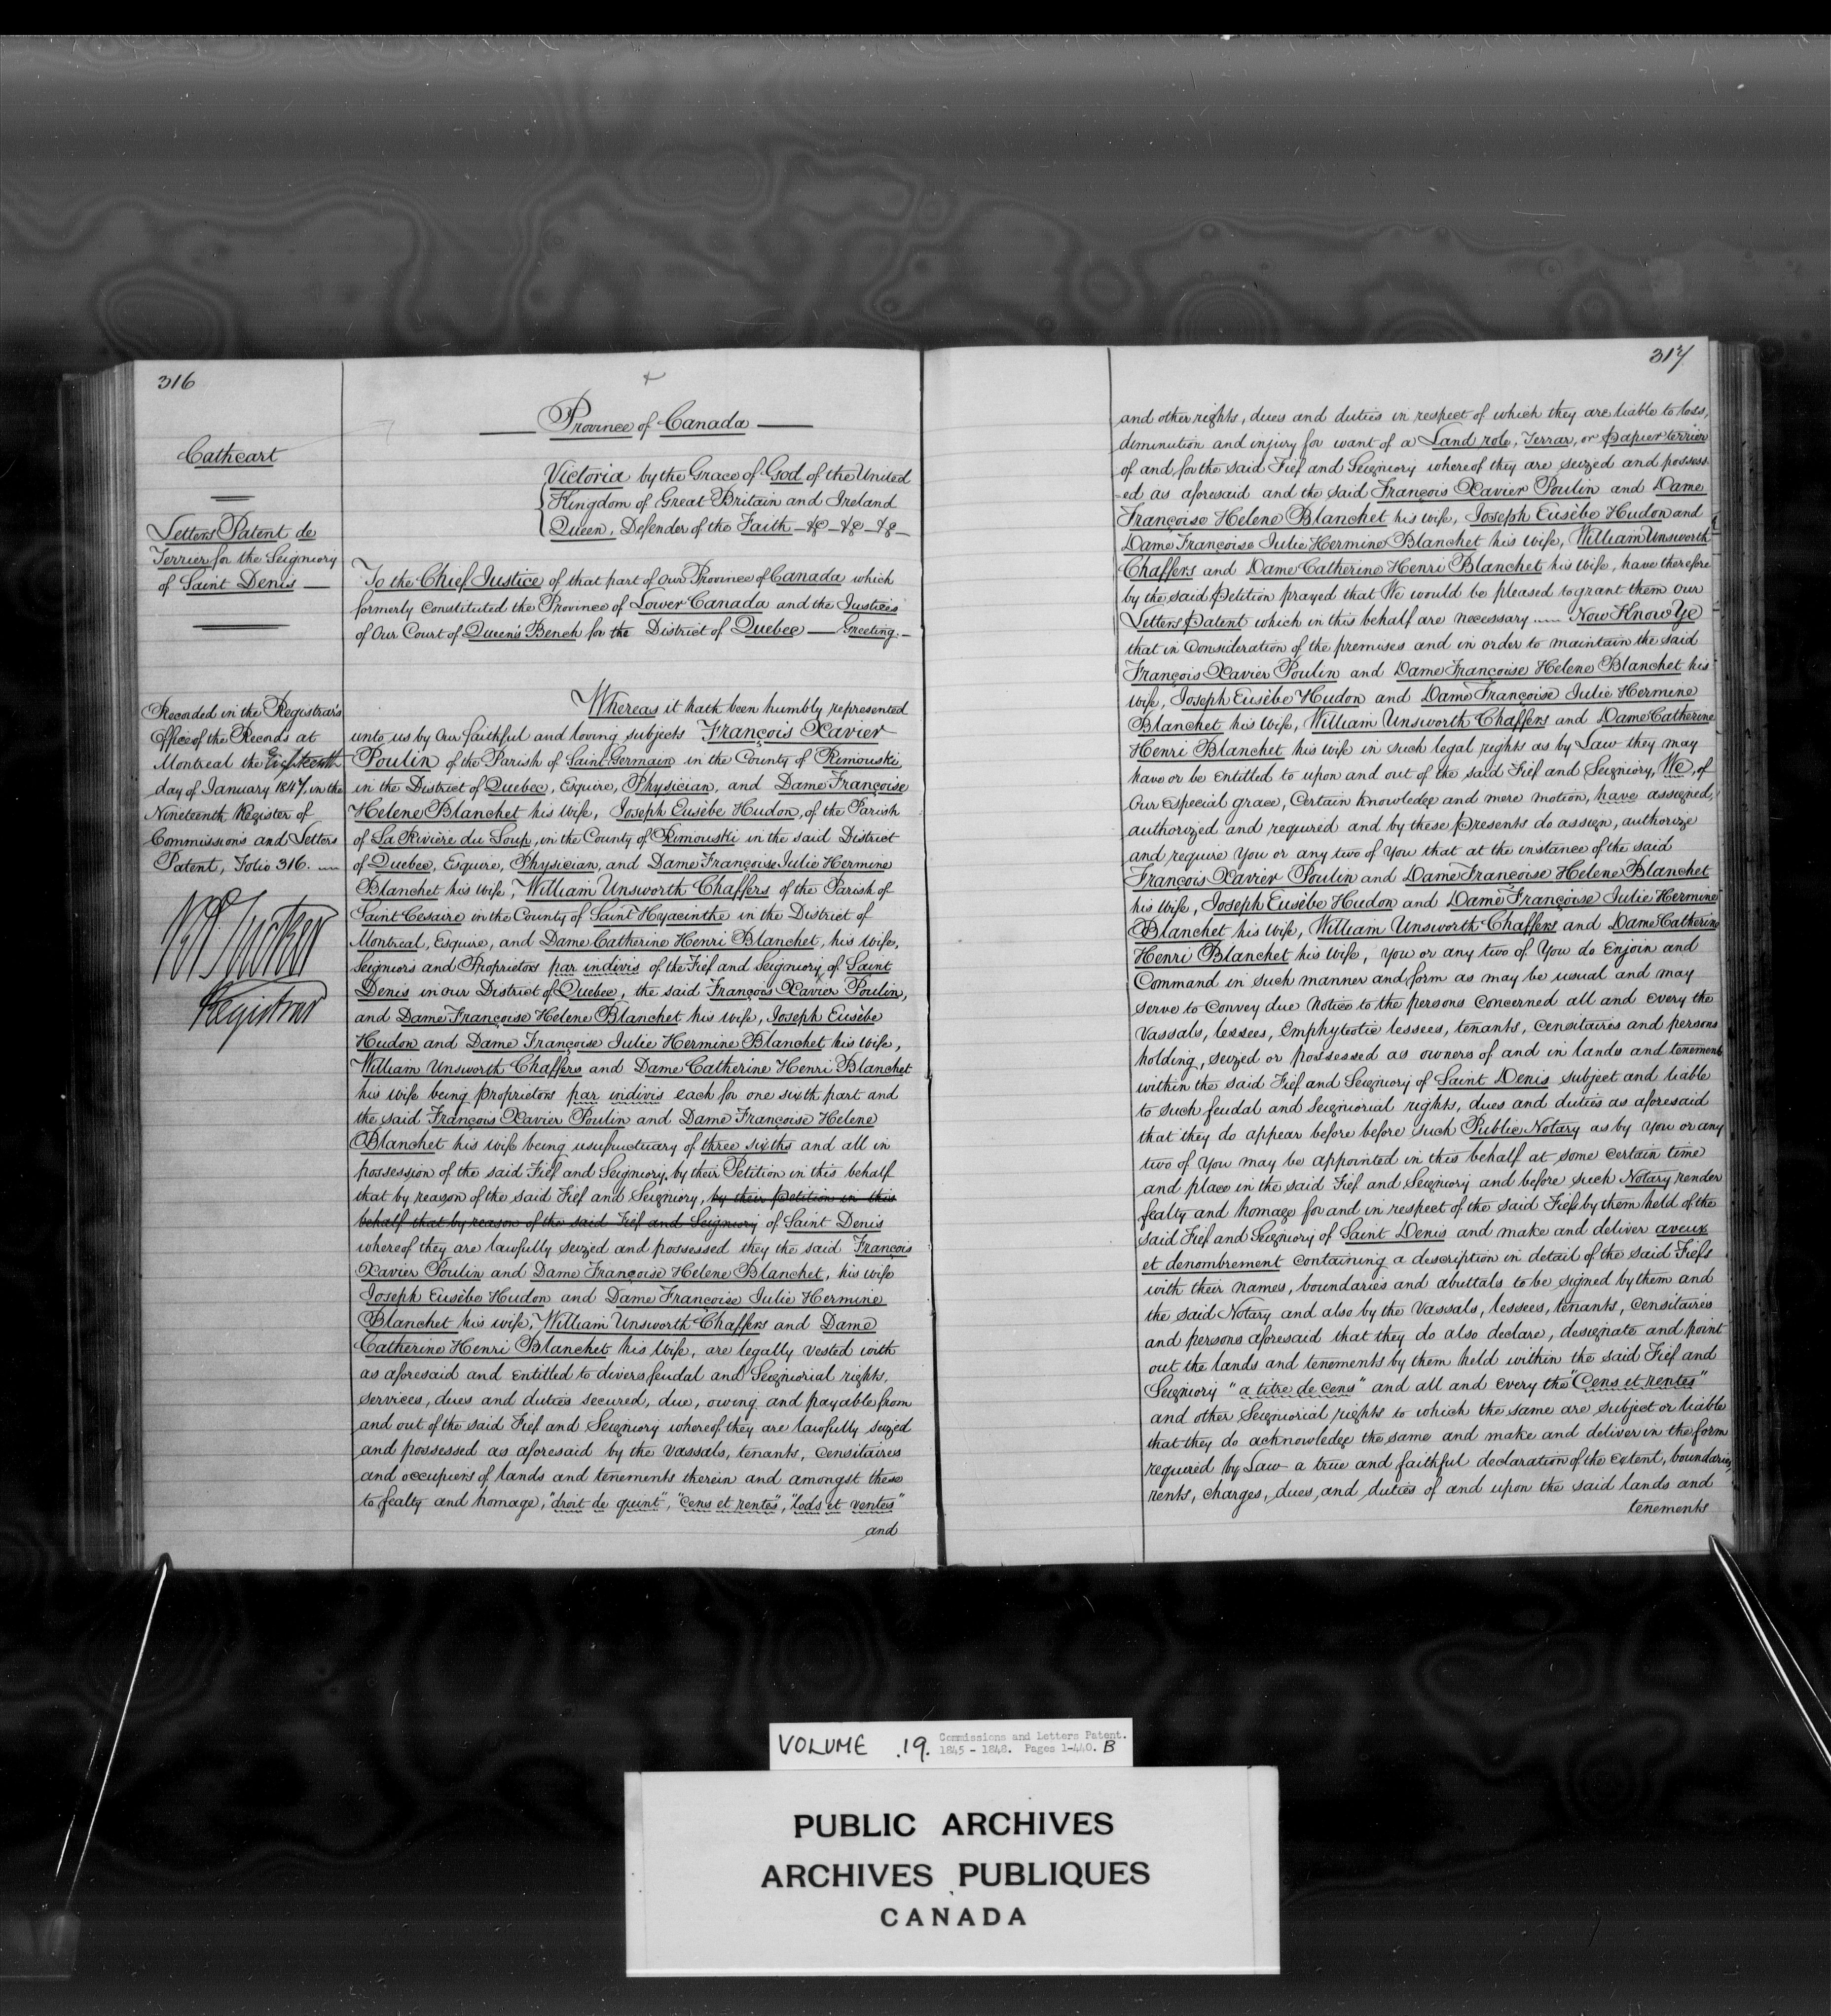 316
Cathcart
Letters Patent de
Terrier for the Seigniory
of Saint Denis
Recorded in the Registrar's
Office of the Records at
Montreal the Eighteenth
day of January 1847, in the
Nineteenth Register of
Commissions and Letters
Patent, Folio 316.
Registrar
Province of Canada
Victoria by the Grace of God of the United
Kingdom of Great Britain and Ireland
Queen, Defender of the Faith — &c — &c — &c —
To the Chief Justice of that part of Our Province of Canada which
formerly Constituted the Province of Lower Canada and the Justices
of Our Court of Queen's Bench for the District of Quebec — Greeting. —
Whereas it hath been humbly represented
unto us by Our faithful and loving subjects François Xavier
Poulin of the Parish of Saint Germain in the County of Rimouski
in the District of Quebec, Esquire, Physician, and Dame Françoise
Helene Blanchet his wife, Joseph Eusèbe Hudon, of the Parish
of La Rivière du Loup, in the County of Rimouski in the said District
of Quebec, Esquire, Physician, and Dame Françoise Julie Hermine
Blanchet his wife, William Unsworth Chaffers of the Parish of
Saint Cesaire in the County of Saint Hyacinthe in the District of
Montreal, Esquire, and Dame Catherine Henri Blanchet, his wife,
Seigniors and Proprietors par indivis of the Fief and Seigniory of Saint
Denis in our District of Quebec, the said François Xavier Poulin,
and Dame Françoise Helene Blanchet his wife, Joseph Eusèbe
Hudon and Dame Françoise Julie Hermine Blanchet his wife,
William Unsworth Chaffers and Dame Catherine Henri Blanchet
his wife being Proprietors par indivis each for one sixth part and
the said François Xavier Poulin and Dame Françoise Helene
Blanchet his wife being usufructuary of three sixths and all in
possession of the said Fief and Seigniory, by their Petition in this behalf
that by reason of the said Fief and Seigniory, by their Petition in this
behalf that by reason of the said Fief and Seigniory of Saint Denis
whereof they are lawfully seized and possessed they the said François
Xavier Poulin and Dame Françoise Helene Blanchet, his wife
Joseph Eusèbe Hudon and Dame Françoise Julie Hermine
Blanchet his wife, William Unsworth Chaffers and Dame
Catherine Henri Blanchet his wife, are legally vested with
as aforesaid and entitled to divers feudal and Seigniorial rights,
services, dues and duties secured, due, owing and payable from
and out of the said Fief and Seigniory whereof they are lawfully seized
and possessed as aforesaid by the vassals, tenants, censitaires
and occupiers of lands and tenements therein and amongst these
to fealty and homage, "droit de quint", "cens et rentes", "lods et ventes"
and
317
and other rights, dues and duties in respect of which they are liable to loss,
diminution and injury for want of a Land role, Terrar, or Papier terrier
of and for the said Fief and Seigniory whereof they are seized and possess-
-ed as aforesaid and the said François Xavier Poulin and Dame
Françoise Helene Blanchet his wife, Joseph Eusèbe Hudon and
Dame Françoise Julie Hermine Blanchet his wife, William Unsworth
Chaffers and Dame Catherine Henri Blanchet his wife, have therefore
by the said Petition prayed that We would be pleased to grant them our
Letters Patent which in this behalf are necessary — Now Know Ye
that in Consideration of the premises and in order to maintain the said
François Xavier Poulin and Dame Françoise Helene Blanchet his
wife, Joseph Eusèbe Hudon and Dame Françoise Julie Hermine
Blanchet his wife, William Unsworth Chaffers and Dame Catherine
Henri Blanchet his wife in such legal rights as by Law they may
have or be entitled to upon and out of the said Fief and Seigniory, We, of
Our especial grace, Certain knowledge and mere motion, have assigned,
authorized and required and by these Presents do assign, authorize
and require You or any two of You that at the instance of the said
François Xavier Poulin and Dame Françoise Helene Blanchet
his wife, Joseph Eusèbe Hudon and Dame Françoise Julie Hermine
Blanchet his wife, William Unsworth Chaffers and Dame Catherine
Henri Blanchet his wife, you or any two of You do Enjoin and
Command in such manner and form as may be usual and may
serve to Convey due Notice to the persons Concerned all and Every the
Vassals, lessees, Emphyteotic lessees, tenants, Censitaires and persons
holding, seized or possessed as owners of and in lands and tenements
within the said Fief and Seigniory of Saint Denis subject and liable
to such feudal and Seigniorial rights, dues and duties as aforesaid
that they do appear before before such Public Notary as by You or any
two of You may be appointed in this behalf at some certain time
and place in the said Fief and Seigniory and before such Notary render
fealty and homage for and in respect of the said Fiefs by them held of the
said Fief and Seigniory of Saint Denis and make and deliver aveux
et denombrement containing a description in detail of the said Fiefs
with their names, boundaries and abuttals to be signed by them and
the said Notary and also by the Vassals, lessees, tenants, Censitaires
and persons aforesaid that they do also declare, designate and point
out the lands and tenements by them held within the said Fief and
Seigniory "a titre de cens" and all and every the "Cens et rentes"
and other Seigniorial rights to which the same are subject or liable
that they do acknowledge the same and make and deliver in the form
required by Law a true and faithful declaration of the Extent, boundaries,
rents, charges, dues, and duties of and upon the said lands and
tenements
VOLUME .19. Commissions and Letters Patent.
1845 - 1848. Pages 1-440. B
PUBLIC ARCHIVES
ARCHIVES PUBLIQUES
CANADA